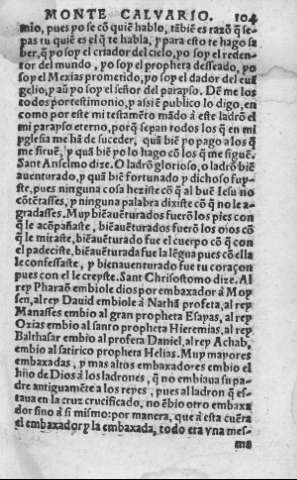 MONTE CALVARIO. 104
mio, pues yo se cõ quiẽ hablo, tãbiẽ es razõ q̃ se-
pas tu quiẽ es el q̃ te habla, y para esto te hago sa
ber, q̃ yo soy el criador del cielo, yo soy el reden-
tor del mundo, yo soy el propheta desseado, yo
soy el Mexias prometido, yo soy el dador del euã
gelio, y aũ yo soy el señor del parayso. Dẽ me los
todos por testimonio, y assi en publico lo digo, en
como por este mi testamẽto mãdo à este ladrõ el
mi parayso eterno, porq̃ sepan todos los q̃ en mi
yglesia me hã de suceder, quã biẽ yo pago a los q̃
me siruẽ, y quã biẽ yo lo hago cõ los q̃ me siguẽ.
Sant Anselmo dize. O ladrõ glorioso, o ladrõ biẽ
auenturado, y quã biẽ fortunado y dichoso fuy-
ste, pues ninguna cosa heziste cõ q̃ al buẽ Iesu no
cõtẽtasses, y ninguna palabra dixiste cõ q̃ no le a-
gradasses. Muy biẽauẽturados fuerõ los pies con
q̃ le acõpañaste, biẽauẽturados fuerõ los ojos cõ
q̃ le miraste, biẽauẽturado fue el cuerpo cõ q̃ con
el padeciste, biẽauẽturada fue la lẽgua pues cõ ella
le confessaste, y bienauenturado fue tu coraçon
pues con el le creyste. Sant Chrisostomo dize. Al
rey Pharaõ embiole dios por embaxador à Moy
sen, al rey Dauid embiole à Nathã profeta, al rey
Manasses embio al gran propheta Esayas, al rey
Ozias embio al santo propheta Hieremias, al rey
Balthasar embio al profeta Daniel, al rey Achab,
embio al satirico propheta Helias. Muy mayores
embaxadas, y mas altos embaxadores embio el
hijo de Dios à los ladrones, q̃ no embiaua su pa-
dre antiguamẽte a los reyes, pues al ladron q̃ es-
taua en la cruz crucificado, no ẽbio otro embaxa
dor sino à si mismo: por manera, que à esta cuẽta
el embaxador y la embaxada, todo era vna mes-
ma